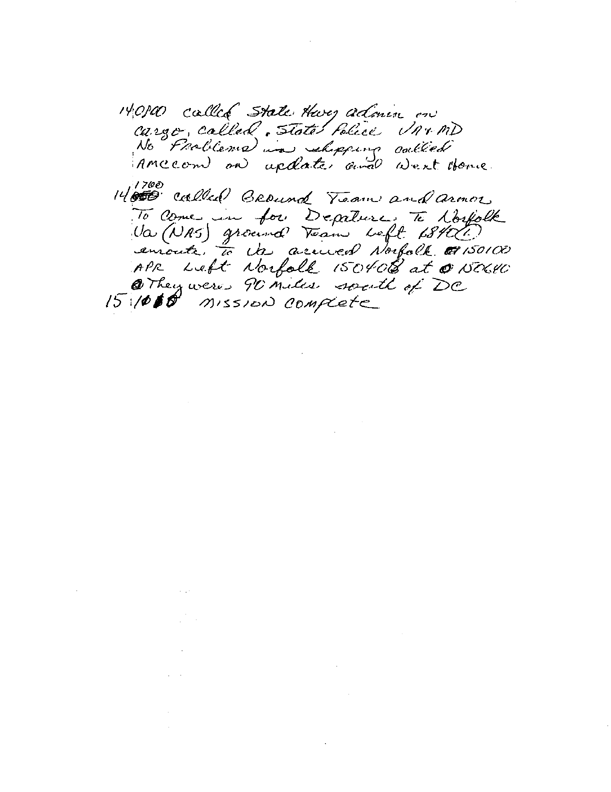 140800 called State Hwy admin on
cargo, called, State Police VA + MD
No Problems in shipping called
AMCCOM on update, and Went Home
1700
14 called Ground Team and armor
To Come in for Depature, To Norfolk
Va (NAS) ground Team Left
enroute, To Va arived Norfolk 150100
APR Left Norfolk at 150640
They were 90 Miles south of DC
15 MISSION COMPLETE